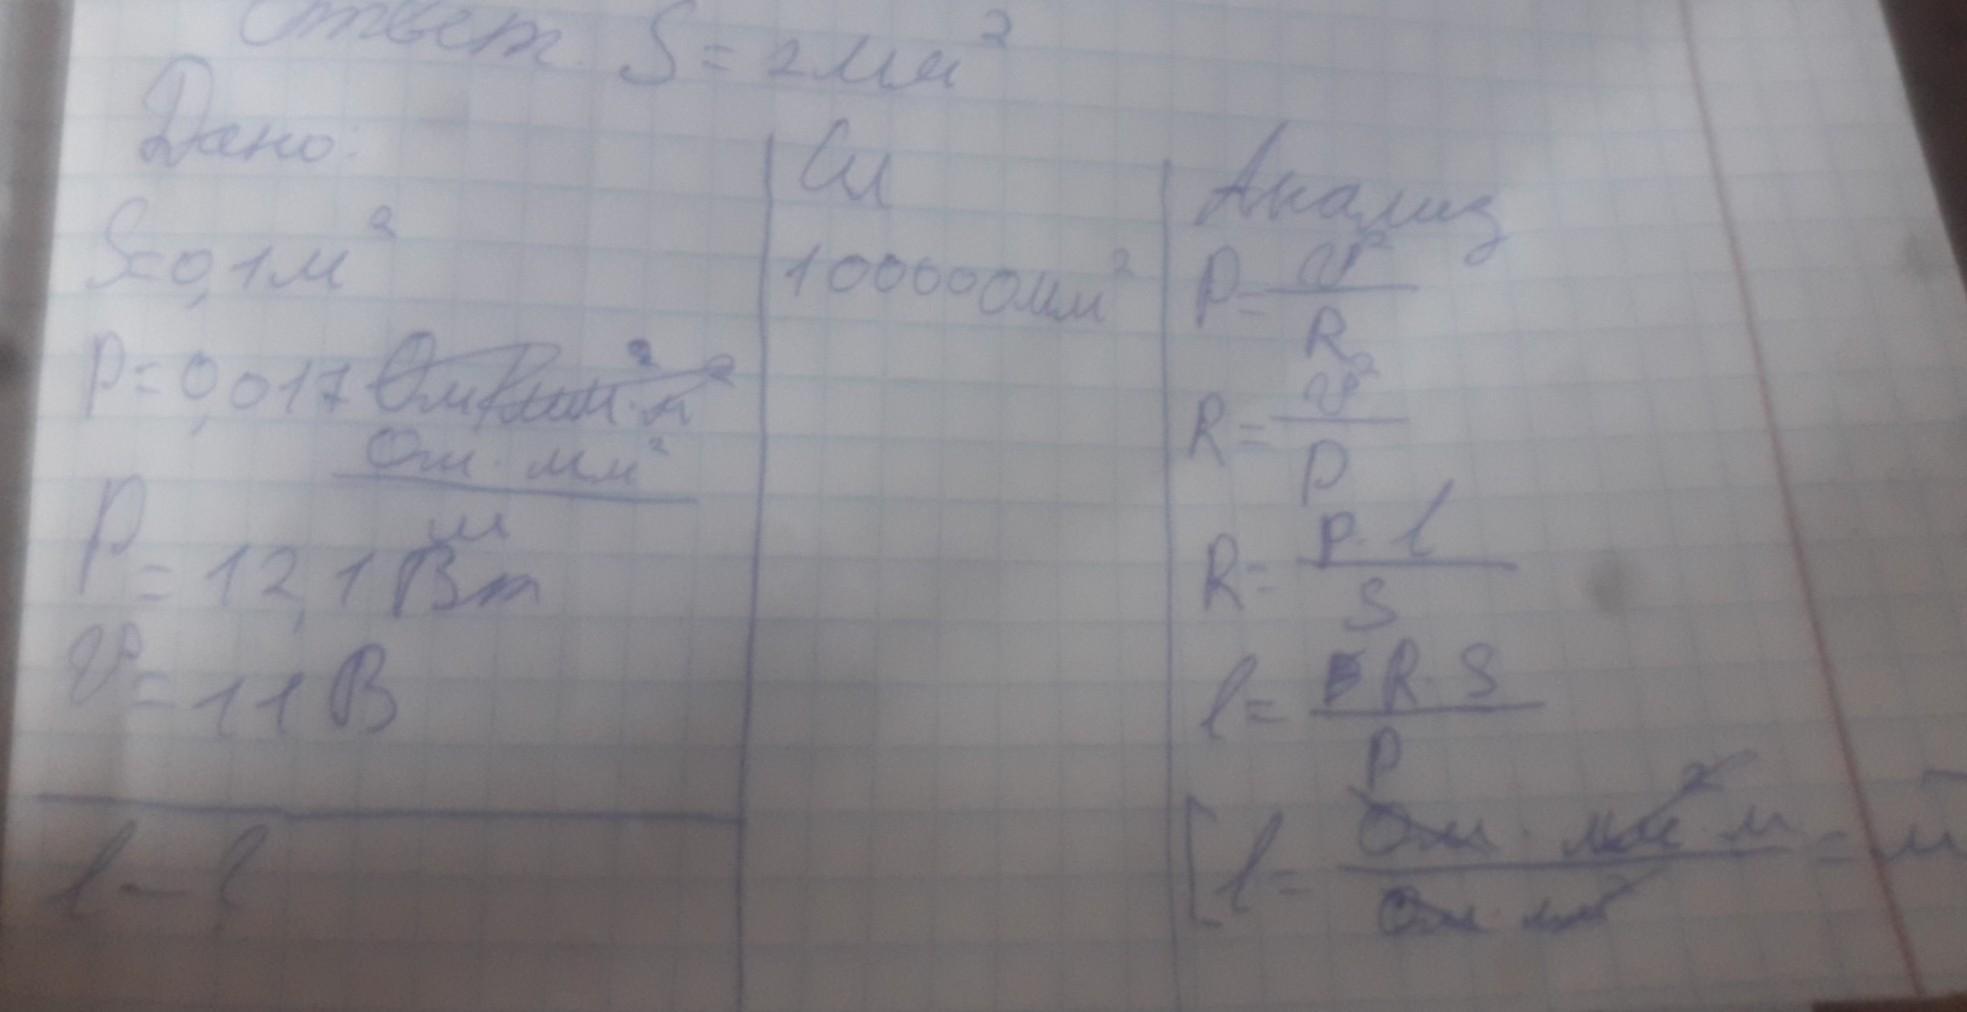 Ответ. S = 2 мм²
Дано:
S=0,1м²
ρ=0,017
Ом · мм²
м
P = 12,1 Вт
U = 11 В
l - ?
СИ
100000мм²
Анализ
P = U²/R
R = U²/P
R = ρ · l/S
l = R · S/ρ
[l = Ом · мм² · м/Ом · мм² = м